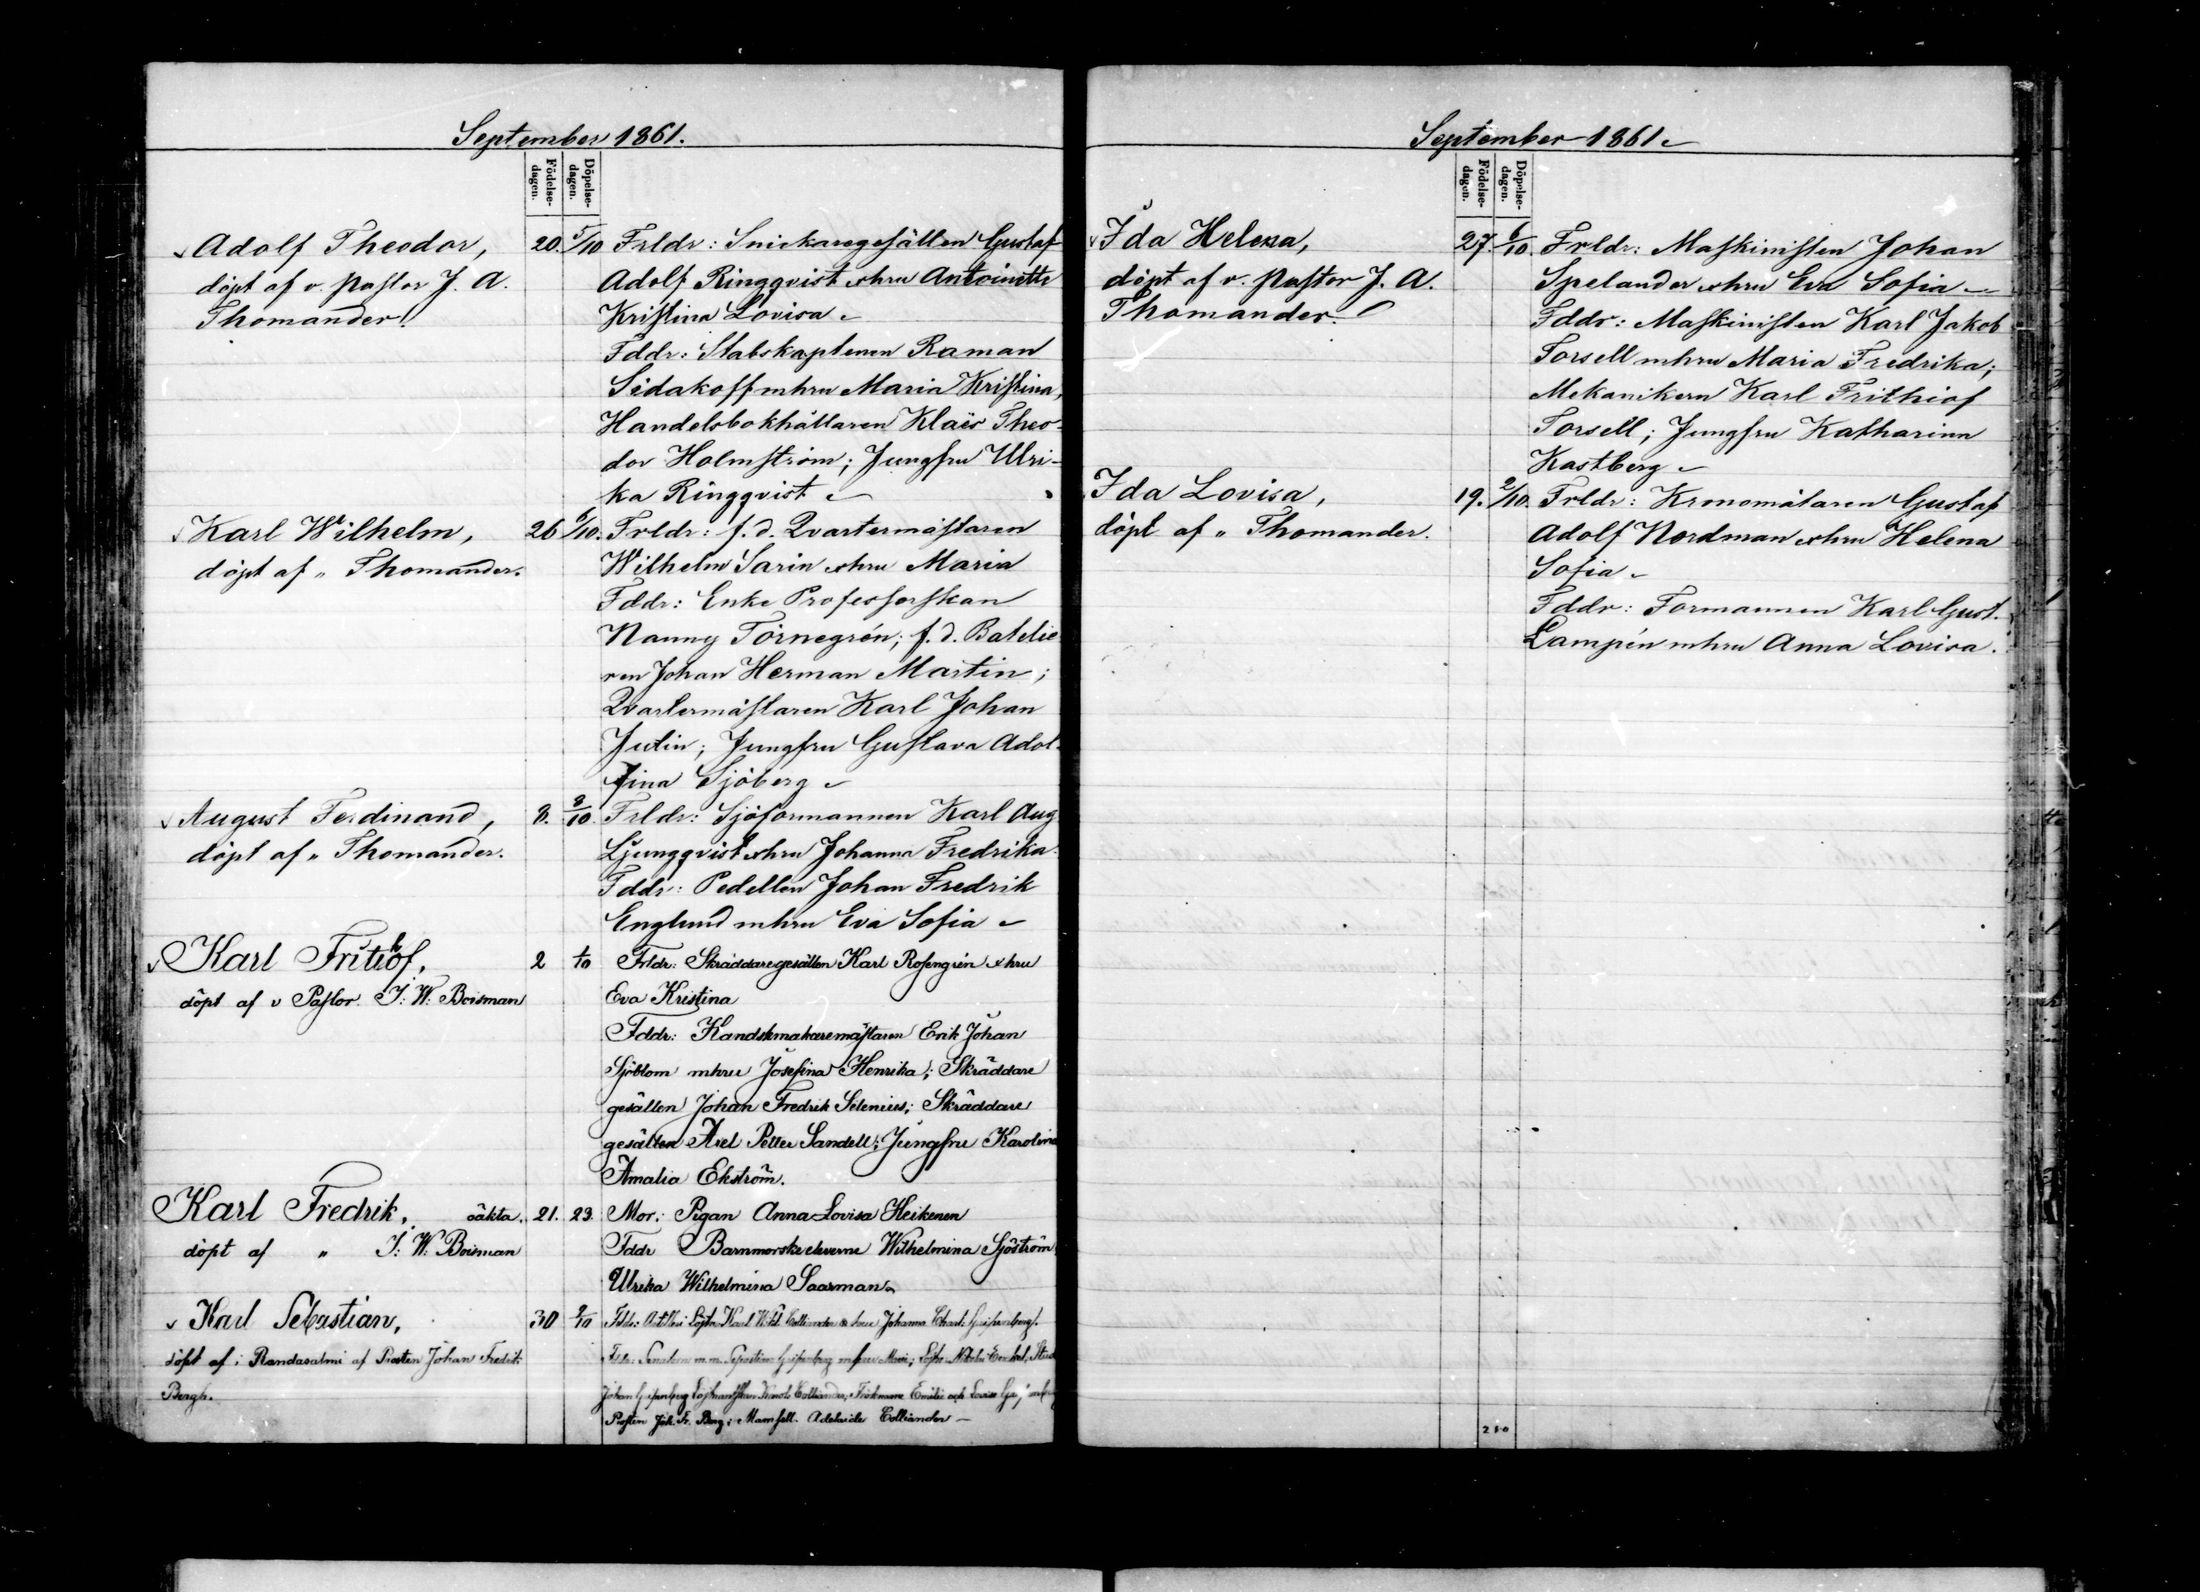 September 1861.
Födelse-dagen.
Döpelse-dagen.
Adolf Theodor,
döpt af v. pastor J. A.
Thomander.
20. 5/10
Frldr: Snickaregesällen Gustaf
Adolf Ringqvist o hru Antoinette
Kristina Lovisa
Fddr: Stabskaptenen Raman
Sidakoff m hru Maria Kristina,
Handelsbokhållaren Klaës Theo-
dor Holmström; Jungfru Ulri-
ka Ringqvist
Karl Wilhelm,
döpt af " Thomander.
26 6/10.
Frldr: f. d. Qvartermästaren
Wilhelm Sarin o hru Maria
Fddr: Enke Professorskan
Nanny Törnegrén; f. d. Batelie
ren Johan Herman Martin;
Qvartermästaren Karl Johan
Jutin; Jungfru Gustava Adol-
fina Sjöberg
August Ferdinand,
döpt af " Thomander.
8. 8/10.
Frldr: Sjöformannen Karl Aug
Ljungqvist o hru Johanna Fredrika
Fddr: Pedellen Johan Fredrik
Englund m hru Eva Sofia
Karl Fritiof,
h
döpt af v Pastor J: W: Boisman
2 1/10
Frldr: Skräddaregesällen Karl Rosengrén o hru
Eva Kristina
Fddr: Handskmakaremästaren Erik Johan
Sjöblom m hru Josefina Henrika; Skräddare
gesällen Johan Fredrik Selenius; Skräddare
gesällen Axel Petter Sandell; Jungfru Karolina
Amalia Ekström.
Karl Fredrik, oäkta.
döpt af " J: W: Boisman
21. 23.
Mor: Pigan Anna Lovisa Heikenen
Fddr Barnmorskeeleverne Wilhelmina Sjöström
Ulrika Wilhelmina Saarman
Karl Sebastian,
döpt af i Randasalmi af Prosten Johan Fredrik
Bergh.
30 2/10
Karl Colliander o hru Johanna Gripenberg.
Fddr: Senatoren m.m. Sebastian Gripenberg m fru Marie;
Johan Gripenberg Colliander, Emilie och Lovise
Prosten Joh. Fr. Berg; Mamsell Adelaide Colliander
September 1861
Födelse-dagen.
Döpelse-dagen.
Ida Helena,
döpt af v. pastor J. A.
Thomander.
27. 6/10.
Frldr: Maskinisten Johan
Spelander o hru Eva Sofia
Fddr: Maskinisten Karl Jakob
Forsell m hru Maria Fredrika;
Mekanikern Karl Frithiof
Forsell; Jungfru Katharina
Kastberg
Ida Lovisa,
döpt af " Thomander.
19. 2/10.
Frldr: Kronomätaren Gustaf
Adolf Nordman o hru Helena
Sofia
Fddr: Formannen Karl Gust.
Lampén m hru Anna Lovisa.
210